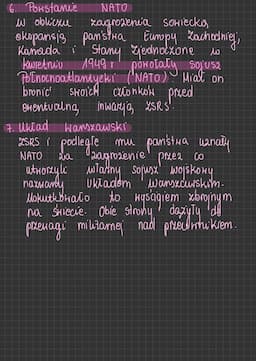 6. Powstanie NATO
W obliczu zagrożenia sowiecką
ekspansją, państwa Europy Zachodniej,
Kanada i Stany Zjednoczone w
kwietniu 1949 r powołały sojusz
Północnoatlantycki (NATO). Miał on
bronić swoich członków przed
ewentualną inwazją ZSRS.
7. Układ Warszawski
ZSRS i podległe mu państwa uznały
NATO za zagrożenie przez co
utworzyły własny sojusz wojskowy
nazwany układem warszawskim.
to wyścigiem zbrojnym
na świecie. Obie strony dążyły do
przewagi militarnej nad przeciwnikiem.